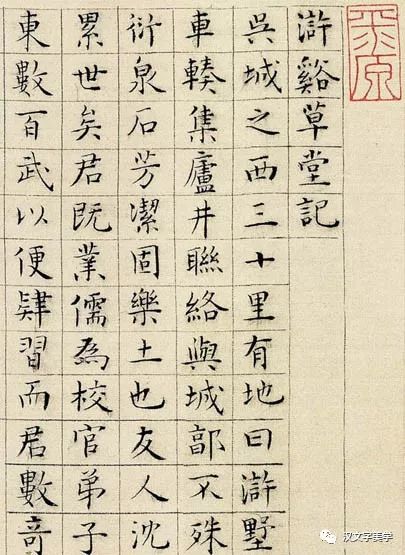 滸谿草堂記
吳城之西三十里有地曰滸墅
車輳集廬井聯絡與城郭不殊
衍泉石芳潔固樂土也友人沈
累世矣君既業儒為校官弟子
東數百武以便肄習而君數奇
汉文字美学